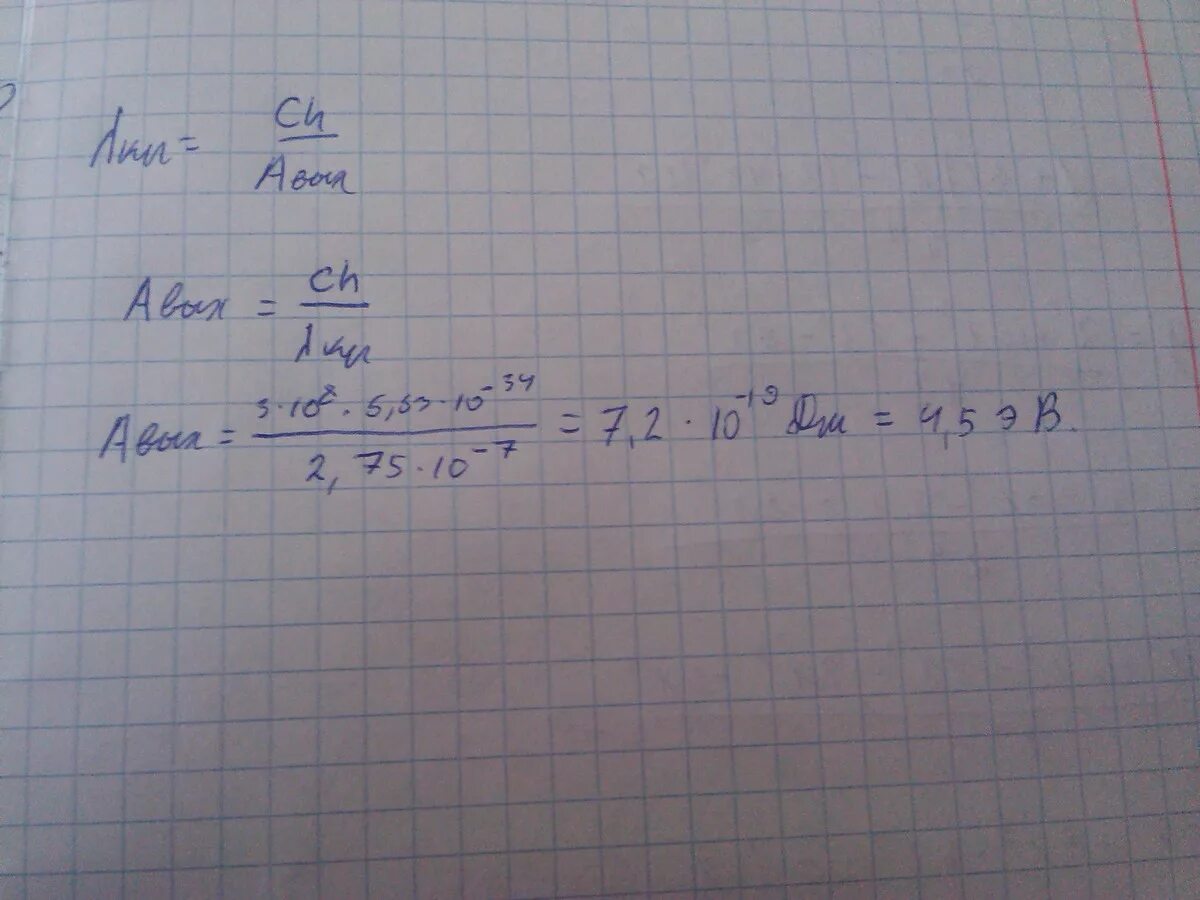 λкр = Ch / Aвых
Aвых = Ch / λкр
Aвых = 3·10⁸ · 6,63·10⁻³⁴ / 2,75·10⁻⁷ = 7,2 · 10⁻¹⁹ Дж = 4,5 эВ.